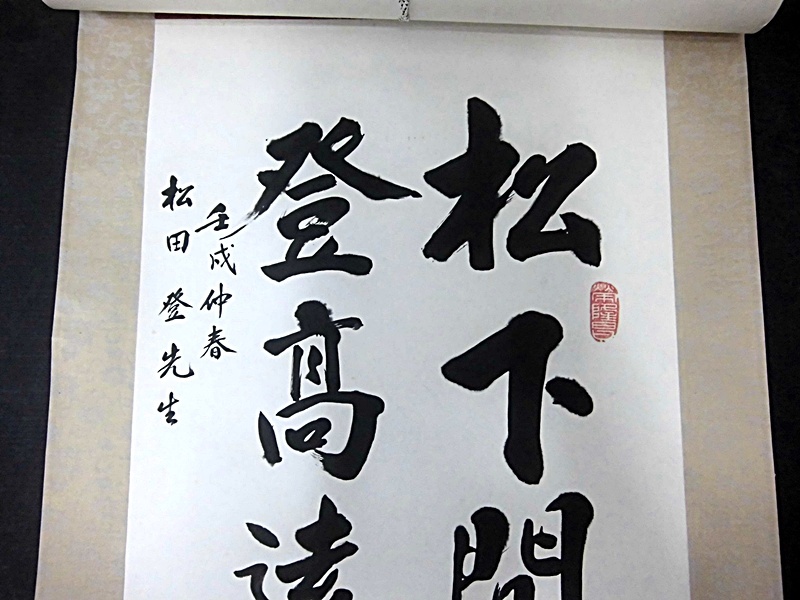 松下問
登高遠
壬戌仲春
松田登先生